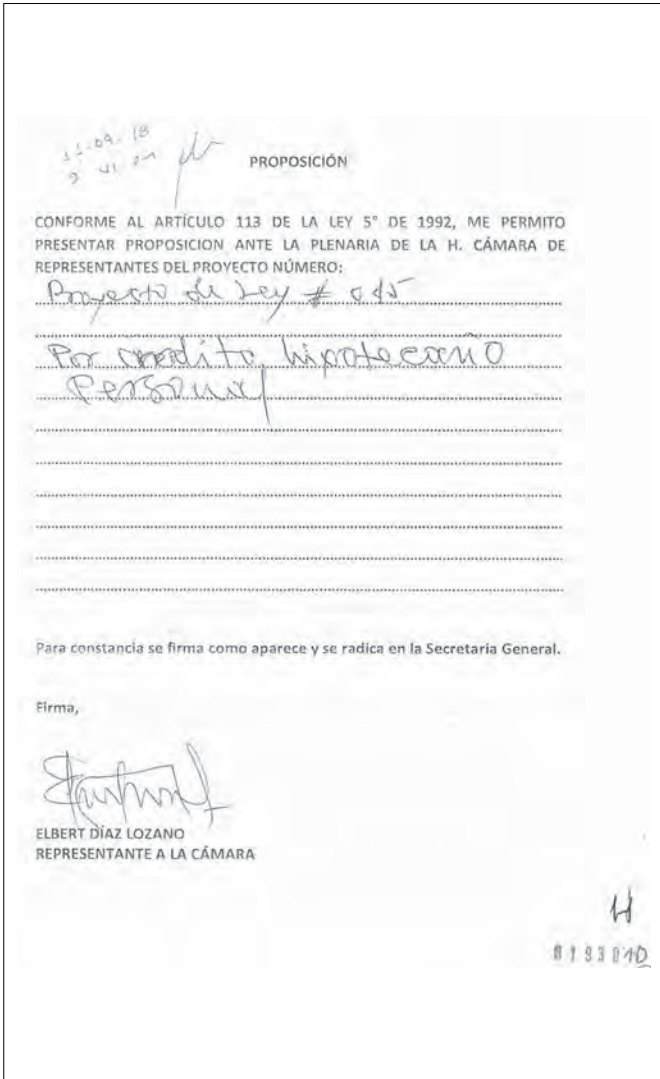 11-09-18
PROPOSICIÓN
CONFORME AL ARTÍCULO 113 DE LA LEY 5° DE 1992, ME PERMITO
PRESENTAR PROPOSICION ANTE LA PLENARIA DE LA H. CÁMARA DE
REPRESENTANTES DEL PROYECTO NÚMERO:
Proyecto de Ley # 015
Por credito hipotecario
Personal
Para constancia se firma como aparece y se radica en la Secretaria General.
Firma,
ELBERT DÍAZ LOZANO
REPRESENTANTE A LA CÁMARA